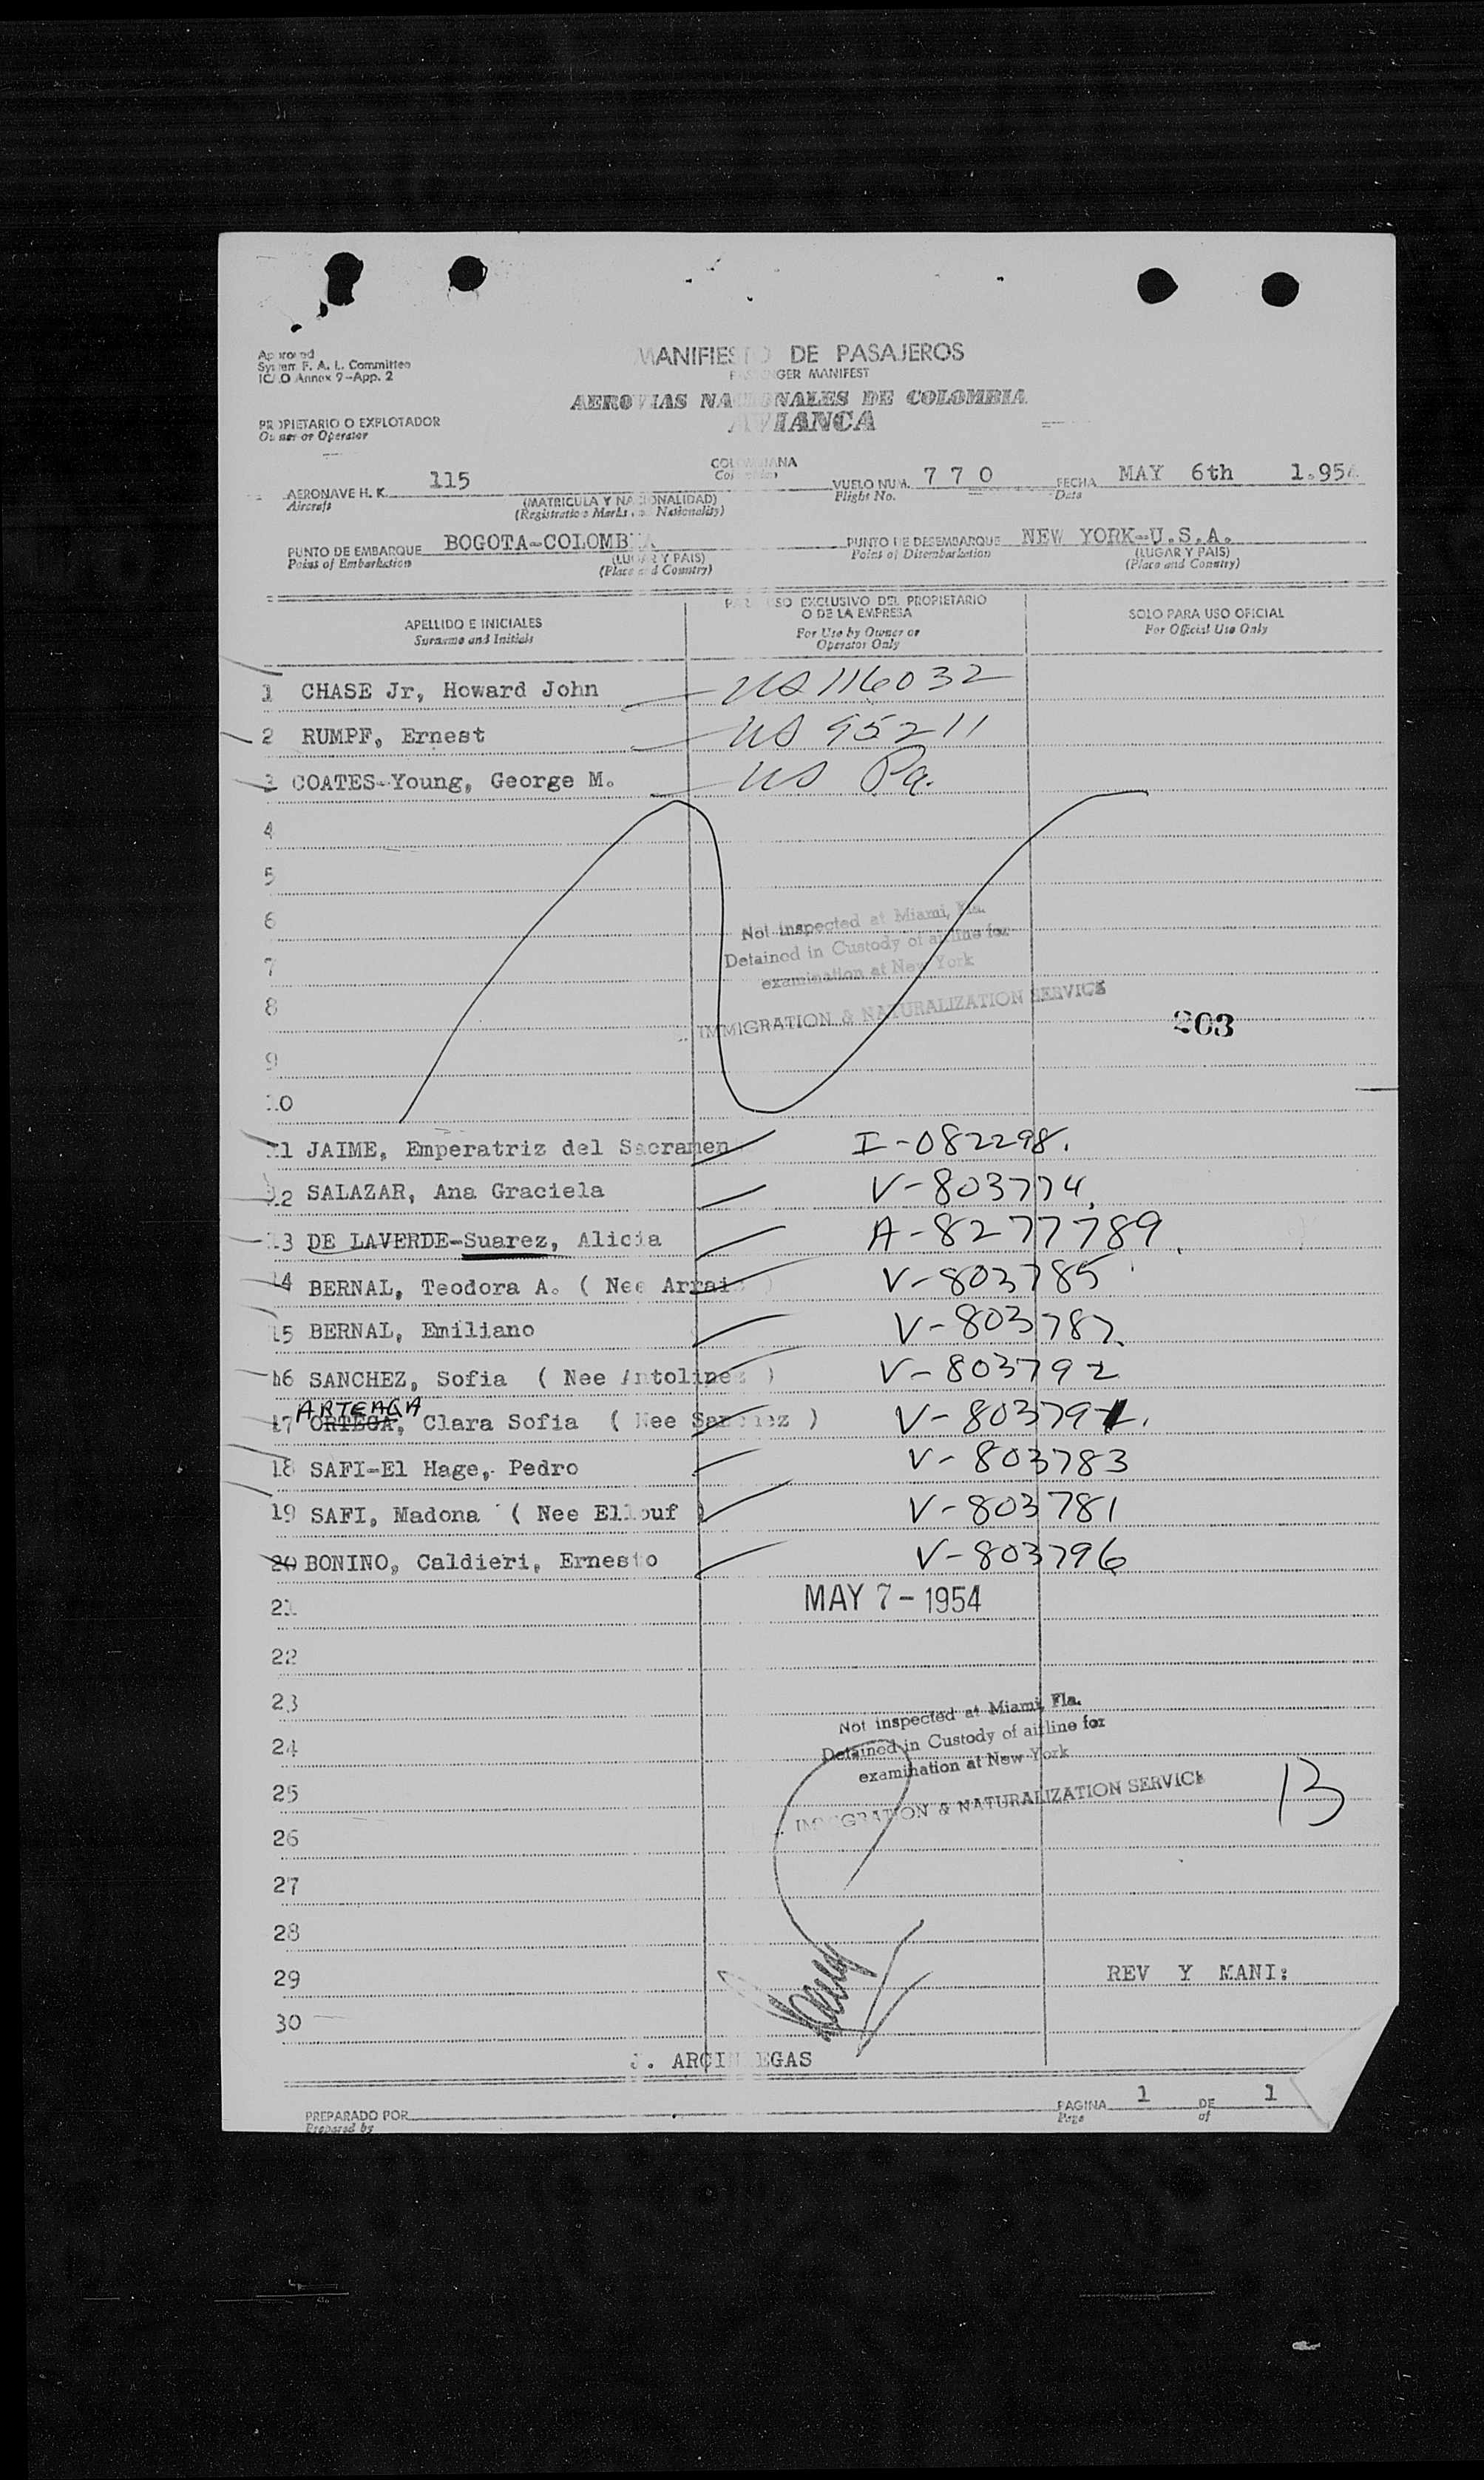 Approved
System F. A. L. Committee
ICAO Annex 9-App. 2
MANIFIESTO DE PASAJEROS
PASSENGER MANIFEST
AEROVIAS NACIONALES DE COLOMBIA
AVIANCA
PROPIETARIO O EXPLOTADOR
Owner or Operator
AERONAVE H. K. 115 COLOMBIANA VUELO NUM. 7 7 0 FECHA MAY 6th 1.954
Aircraft (MATRICULA Y NACIONALIDAD) Colombian Flight No. Date
(Registration Marks and Nationality)
PUNTO DE EMBARQUE BOGOTA-COLOMBIA PUNTO DE DESEMBARQUE NEW YORK-U.S.A.
Point of Embarkation (LUGAR Y PAIS) Point of Disembarkation (LUGAR Y PAIS)
(Place and Country) (Place and Country)
APELLIDO E INICIALES PARA USO EXCLUSIVO DEL PROPIETARIO SOLO PARA USO OFICIAL
Surname and Initials O DE LA EMPRESA For Official Use Only
For Use by Owner or
Operator Only
1 CHASE Jr, Howard John US 116032
2 RUMPF, Ernest US 95211
3 COATES-Young, George M. US Pa.
4
5
6
Not inspected at Miami, Fla.
7 Detained in Custody of airline for
examination at New York
8 IMMIGRATION & NATURALIZATION SERVICE
203
9
10
11 JAIME, Emperatriz del Sacramen I-082298.
12 SALAZAR, Ana Graciela V-803774
13 DE LAVERDE-Suarez, Alicia A-8277789
14 BERNAL, Teodora A. ( Nee Arrai ) V-803785
15 BERNAL, Emiliano V-803787
16 SANCHEZ, Sofia ( Nee Antolinez ) V-803792
ARTEAGA
17 ORTEGA, Clara Sofia ( Nee Sanchez ) V-803791.
18 SAFI-El Hage, Pedro V-803783
19 SAFI, Madona ( Nee Ellouf ) V-803781
20 BONINO, Caldieri, Ernesto V-803796
21 MAY 7 - 1954
22
23
Not inspected at Miami, Fla.
24 Detained in Custody of airline for
examination at New York
25 IMMIGRATION & NATURALIZATION SERVICE 13
26
27
28
29 REV Y MANI:
30
J. ARCINIEGAS
PREPARADO POR PAGINA 1 DE 1
Prepared by Page of